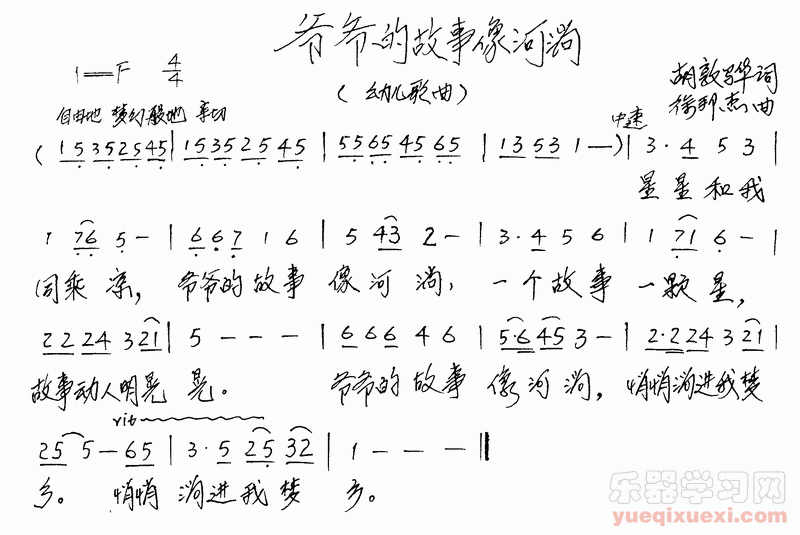 爷爷的故事像河淌
1=F 4/4
（幼儿歌曲）
胡敦骅词
徐邦杰曲
自由地 梦幻般地 亲切
中速
( 15352545 | 15352545 | 55654565 | 1353 1 — ) | 3·4 5 3 |
星星和我
1 76 5 - | 6 6 7 1 6 | 5 43 2 - | 3·4 5 6 | 1 71 6 - |
同乘凉，爷爷的故事像河淌，一个故事一颗星，
22 24 3 21 | 5 - - - | 6 6 6 4 6 | 5·6 45 3 - | 2·2 24 3 21 |
故事动人明晃晃。 爷爷的故事像河淌，悄悄淌进我梦
rit
25 5 - 65 | 3·5 25 32 | 1 - - - ‖
乡。 悄悄淌进我梦乡。
乐器学习网
yueqixuexi.com